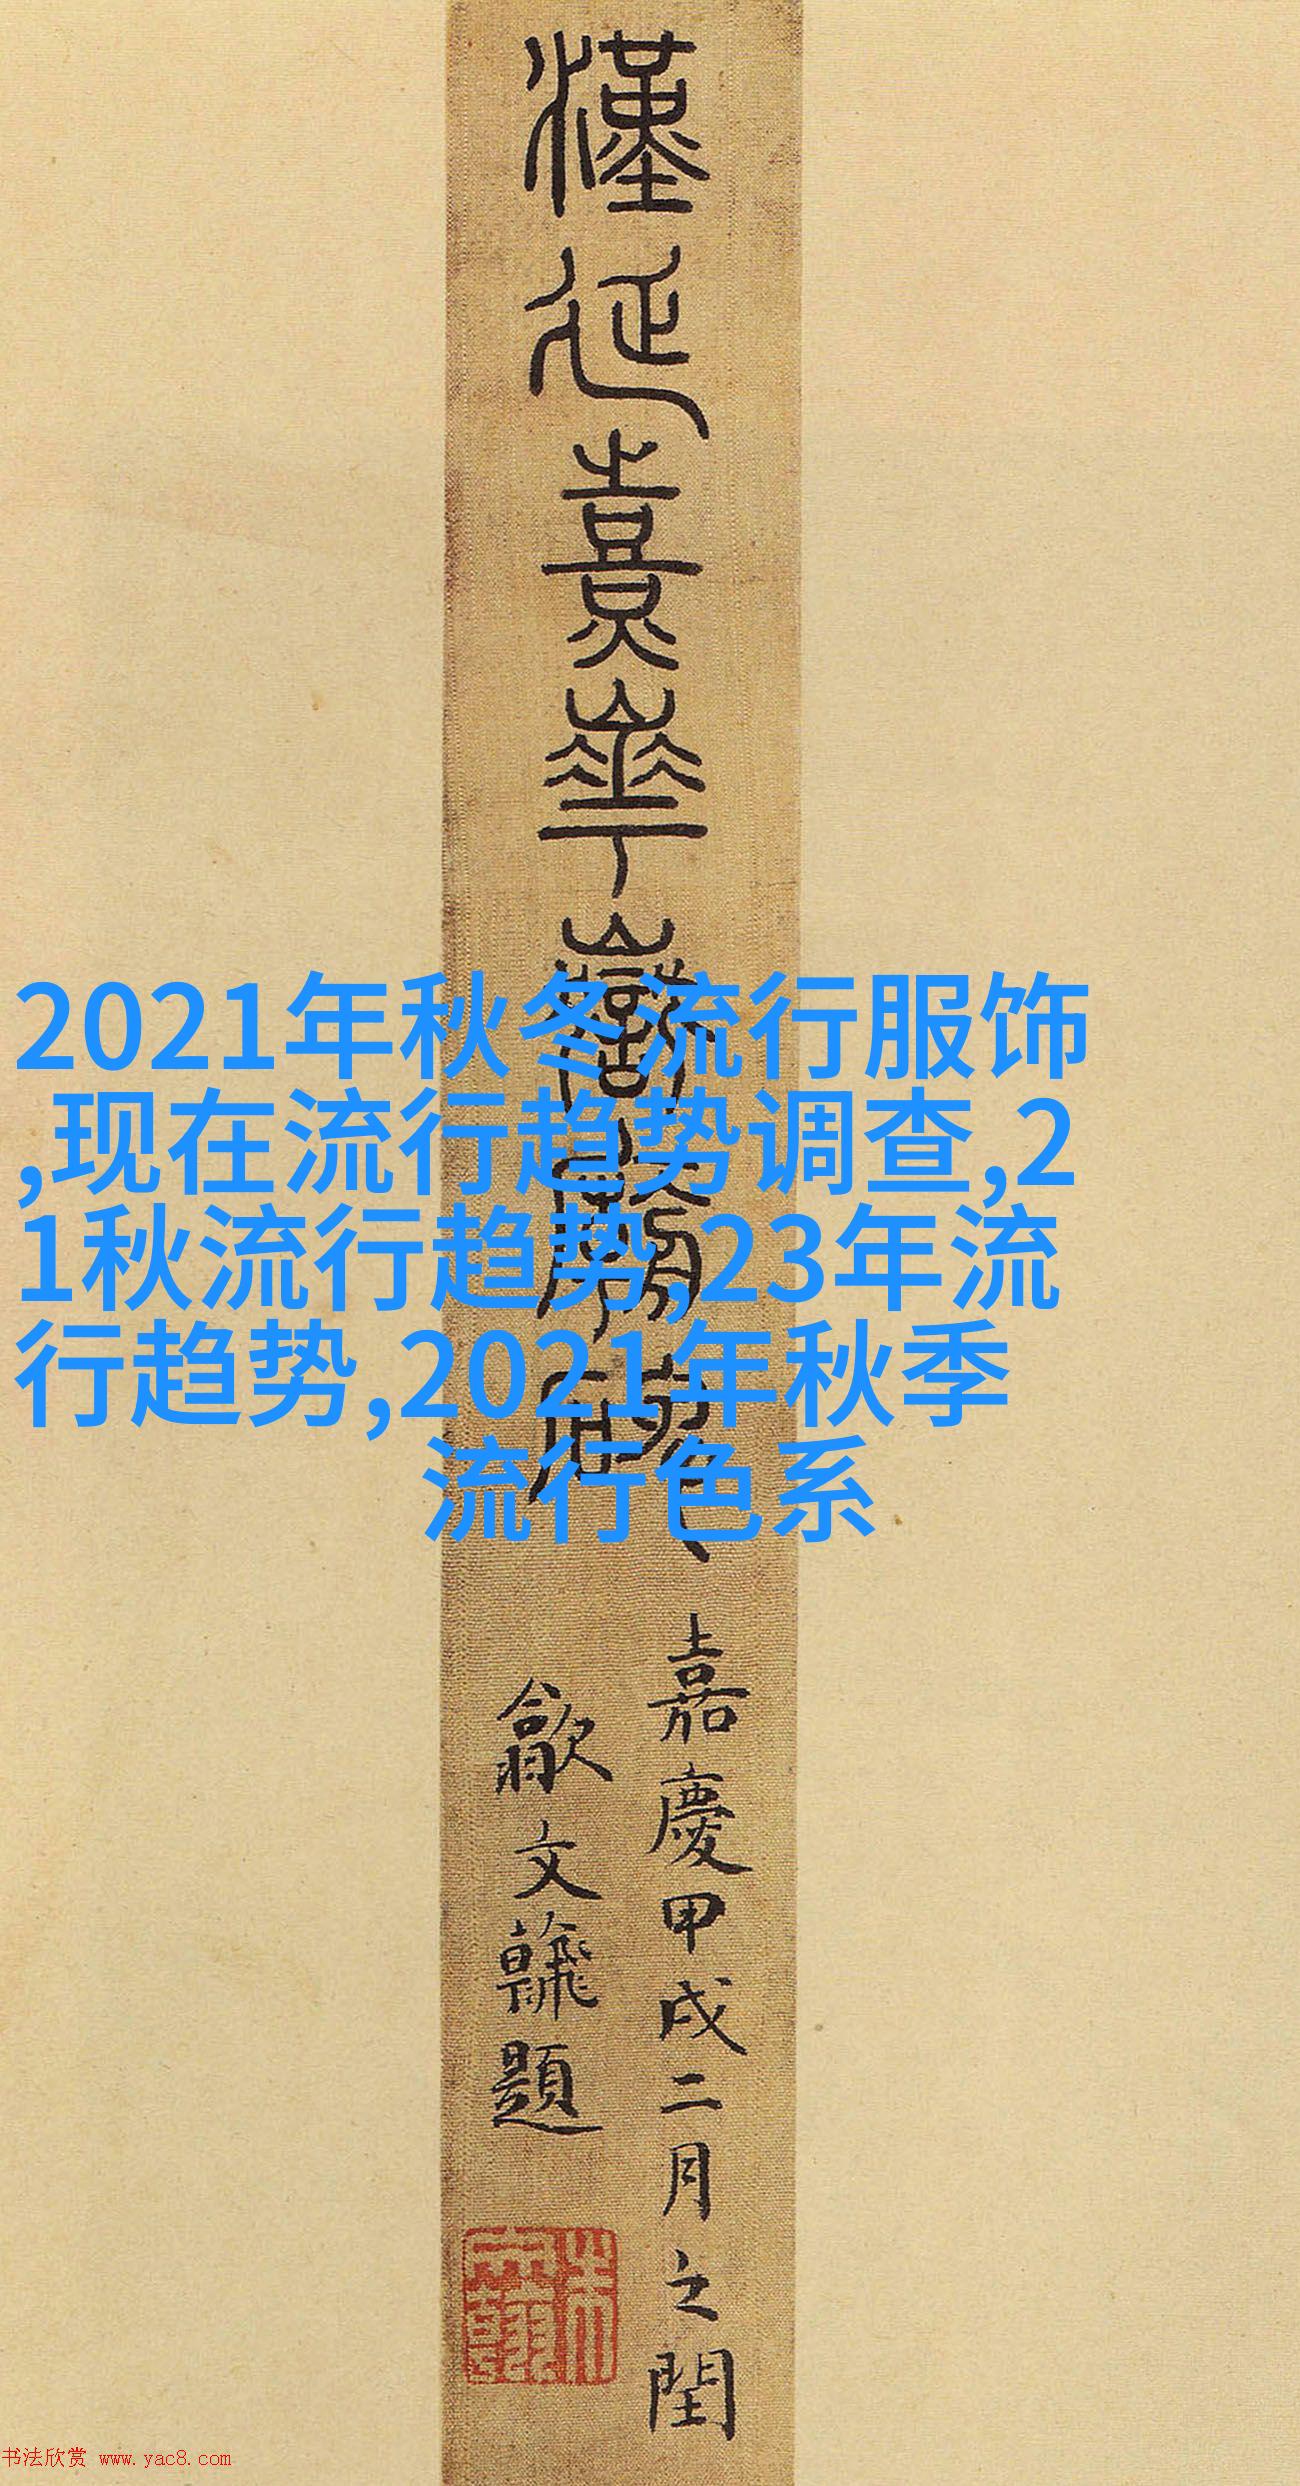 漢延熹華嶽廟碑
嘉慶甲戌二月之閏
歙文翰題
2021年秋冬流行服饰
,现在流行趋势调查,2
1秋流行趋势,23年流
行趋势,2021年秋季
流行色系
书法欣赏 www.yac8.com